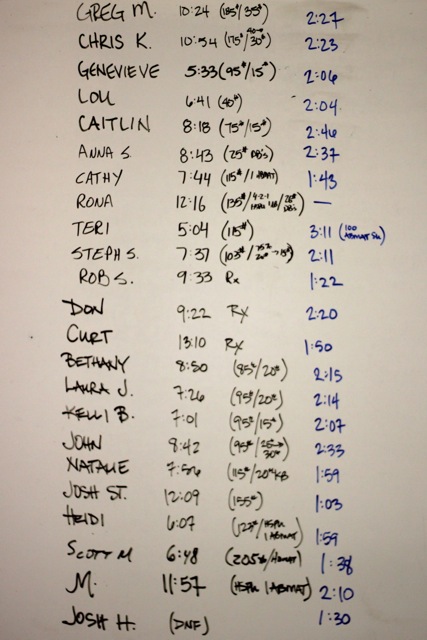 GREG M. 10:24 (185#/35#) 2:27
CHRIS K. 10:54 (175#/30#) 2:23
GENEVIEVE 5:33 (95#/15#) 2:06
LOU 6:41 (40#) 2:04
CAITLIN 8:18 (75#/15#) 2:46
ANNA S. 8:43 (25# DB's) 2:37
CATHY 7:44 (115#/1 ABMAT) 1:43
RONA 12:16 (135#/4-2-1 DB's) —
TERI 5:04 (115#) 3:11 (100 ABMAT SU)
STEPH S. 7:37 (103#/ 2:11
ROB S. 9:33 Rx 1:22
DON 9:22 RX 2:20
CURT 13:10 RX 1:50
BETHANY 8:50 (85#/20#) 2:15
LAURA J. 7:26 (95#/20#) 2:14
KELLI B. 7:01 (95#/15#) 2:07
JOHN 8:42 (95#/25#→30#) 2:33
NATALIE (115#/20#KB 1:59
JOSH ST. 12:09 (155#) 1:03
HEIDI 6:07 (123#/HSPU 1 ABMAT) 1:59
SCOTT M 6:48 (205#/ABMAT) 1:38
M. 11:57 (HSPU 1 ABMAT) 2:10
JOSH H. (DNF) 1:30